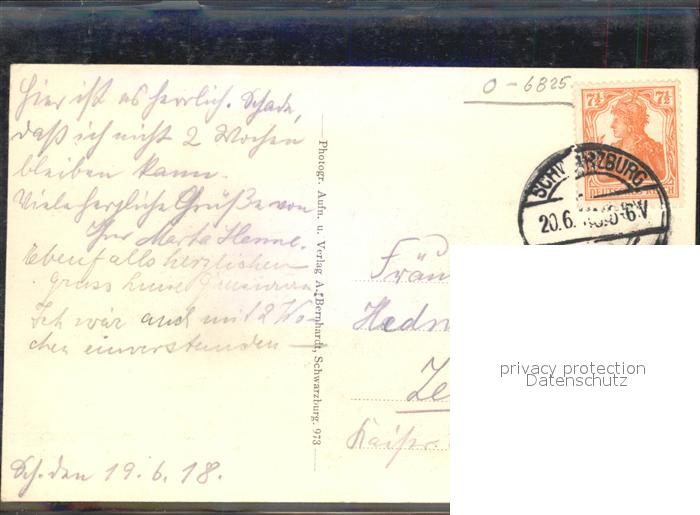 Hier ist es herrlich. Schade,
daß ich nicht 2 Wochen
bleiben kann.
Viele herzliche Grüße von
Ihrer Marta Henne.
Ebenfalls herzlichen
Gruss
Ich wär auch mit 2 Wo-
chen einverstanden —
Sch. den 19.6.18.
Photogr. Aufn. u. Verlag A. Bernhardt, Schwarzburg. 973
0-6825
7½ 7½
DEUTSCHES REICH
SCHWARZBURG
20.6.
6.V
Fräu
Hedw
Ze
Kaiser
privacy protection
Datenschutz